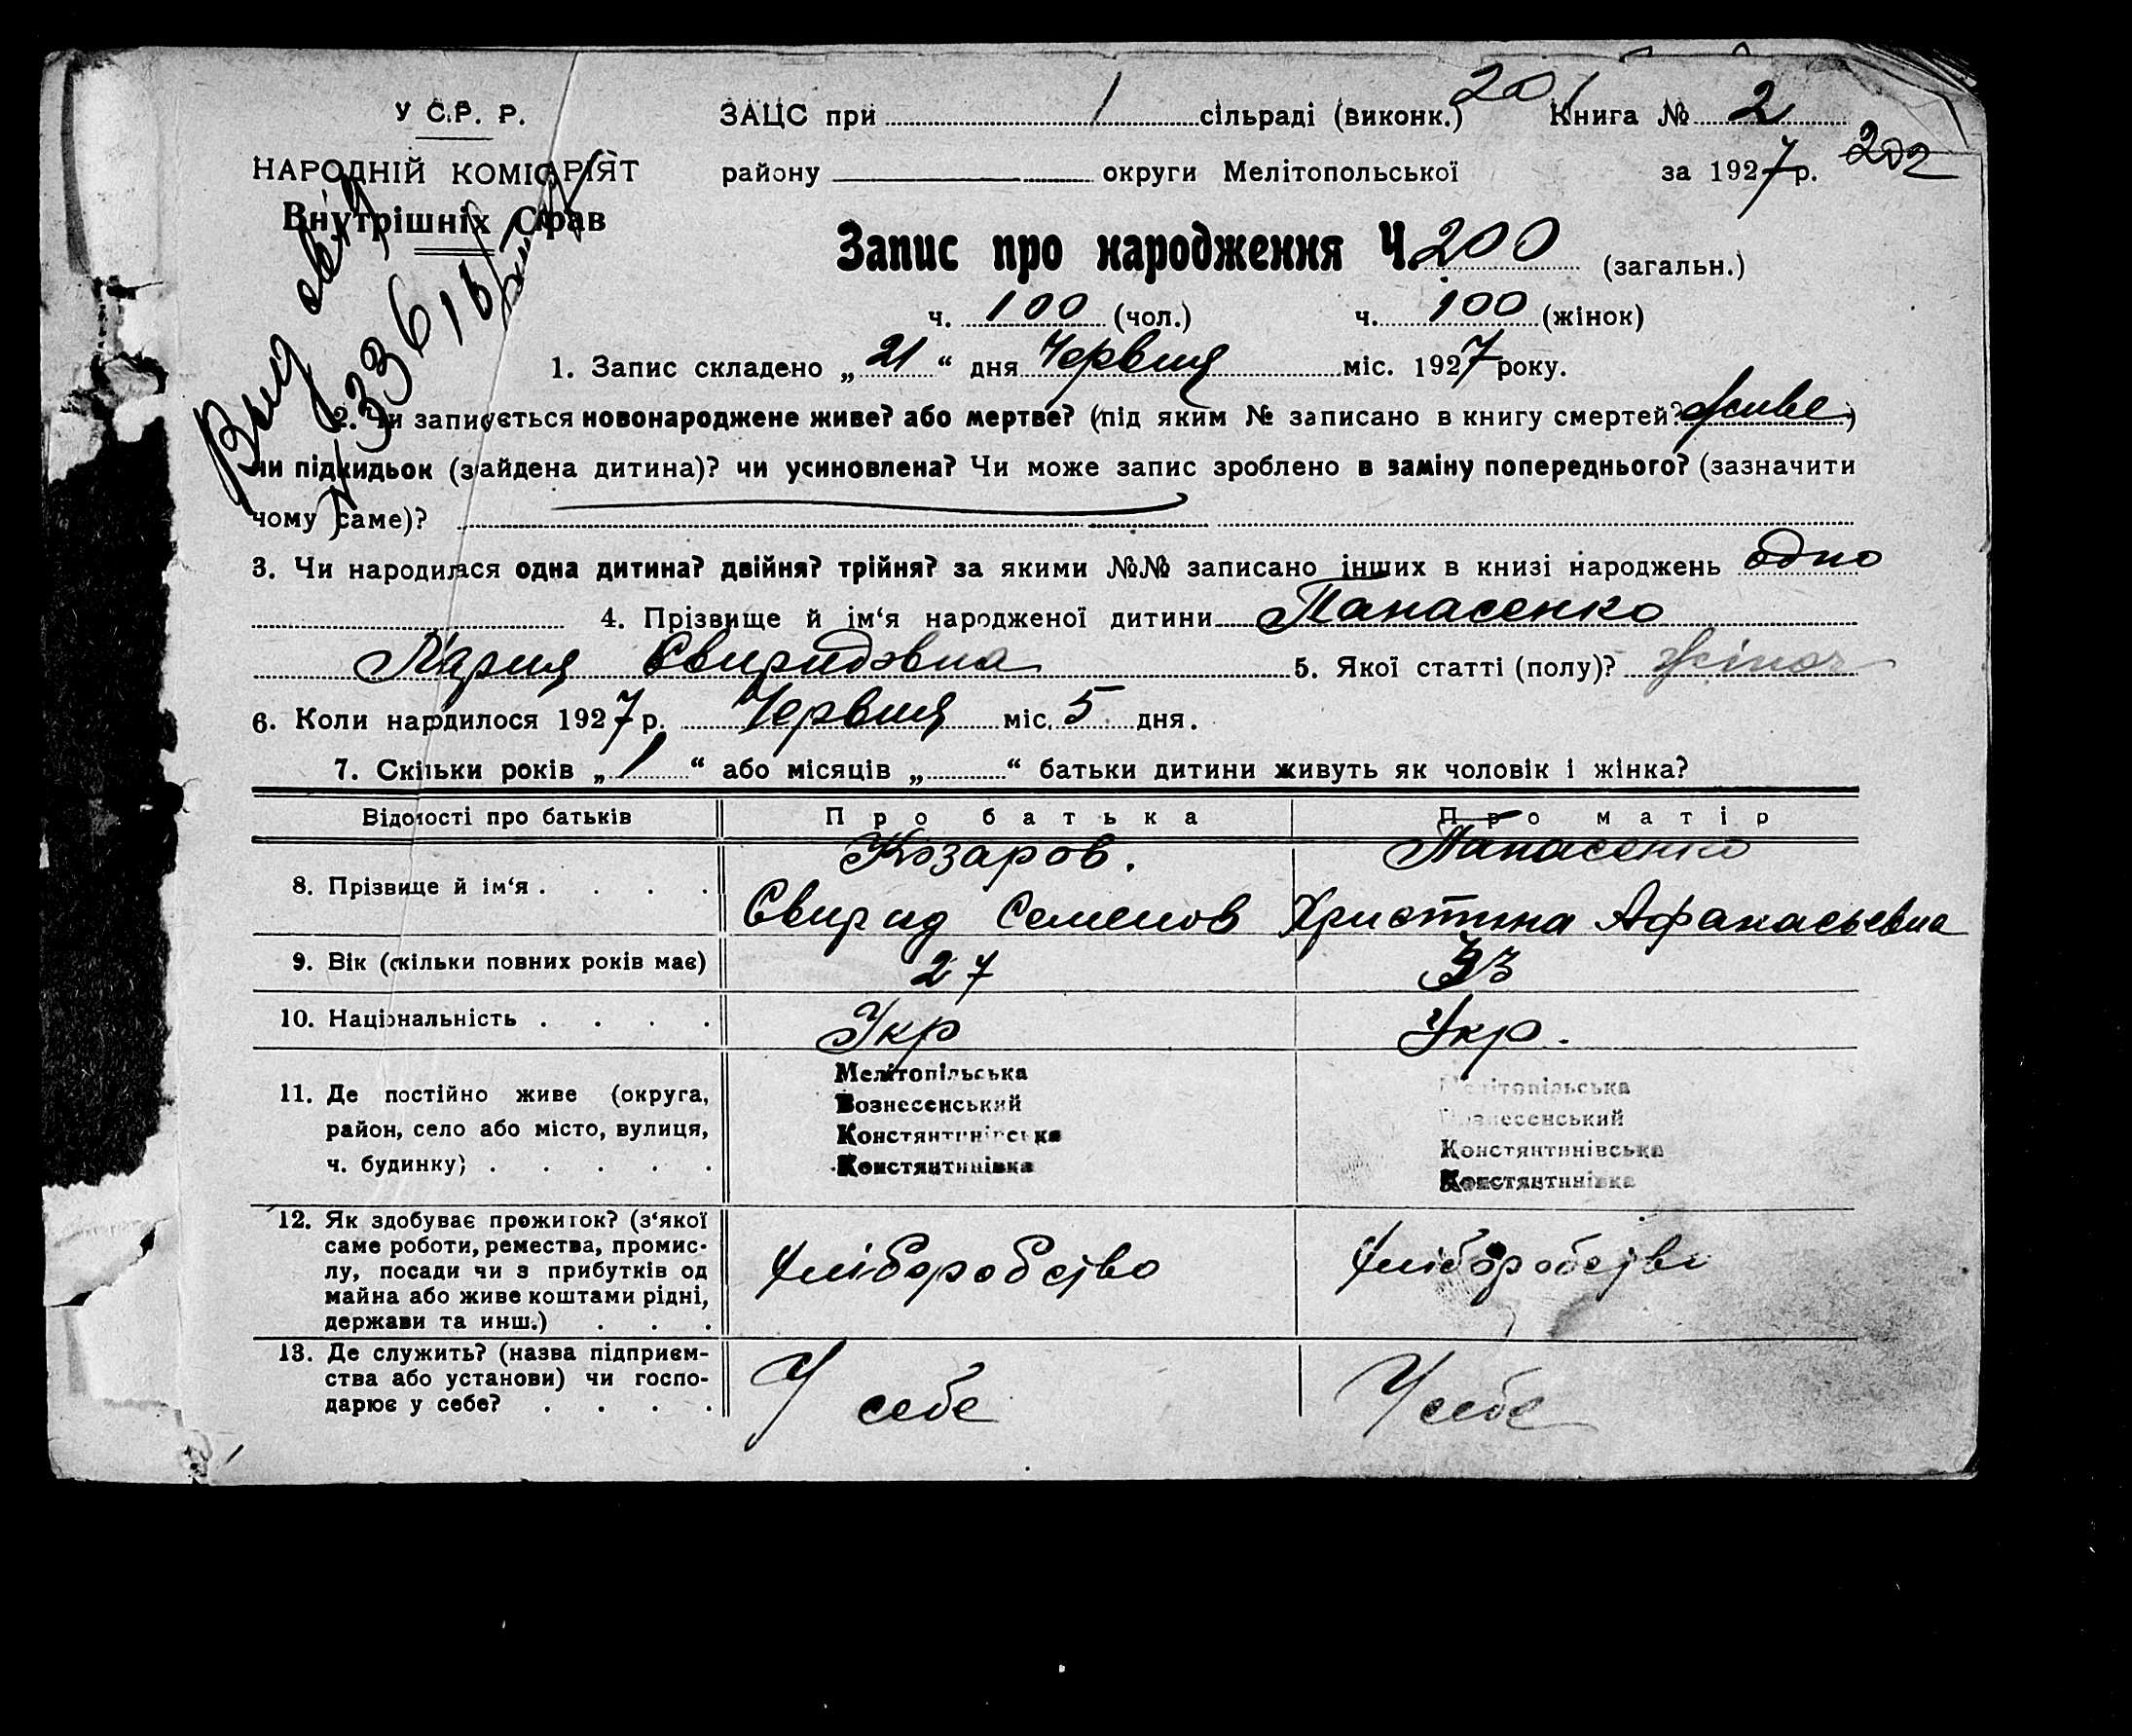 У С.Р. Р.
НАРОДНІЙ КОМІСАРІЯТ
Внутрішніх Справ
ЗАЦС при 1 сільраді (виконк.) 201 Книга № 2
району округи Мелітопольської за 1927 р. 202
Запис про народження Ч. 200 (загальн.)
ч. 100 (чол.) ч. 100 (жінок)
1. Запис складено „21“ дня Червня міс. 1927 року.
2. Чи записується новонароджене живе? або мертве? (під яким № записано в книгу смертей? живе)
чи підкидьок (знайдена дитина)? чи усиновлена? Чи може запис зроблено в заміну попереднього? (зазначити
чому саме)?
3. Чи народилася одна дитина? двійня? трійня? за якими №№ записано інших в книзі народжень одно
4. Прізвище й ім‘я народженої дитини Панасенко
Мария Свиридовна 5. Якої статті (полу)? жіноч
6. Коли нардилося 1927 р. Червня міс. 5 дня.
7. Скільки років „1“ або місяців „ “ батьки дитини живуть як чоловік і жінка?
Відомості про батьків Про батька Про матір
8. Прізвище й ім‘я . . . . Козаров. Свирид Семенов Панасенко Христина Афанасьевна
9. Вік (скільки повних років має) 27 33
10. Національність . . . . Укр Укр.
11. Де постійно живе (округа,
район, село або місто, вулиця,
ч. будинку) . . . . .
Мелітопільська
Вознесенський
Констянтинівська
Констянтинівка
Мелітопільська
Вознесенський
Констянтинівська
Констянтинівка
12. Як здобуває прожиток? (з‘якої
саме роботи, ремества, промис-
лу, посади чи з прибутків од
майна або живе коштами рідні,
держави та инш.) . . .
Хліборобство
Хліборобство
13. Де служить? (назва підприєм-
ства або установи) чи госпо-
дарює у себе? . . . .
У себе
У себе